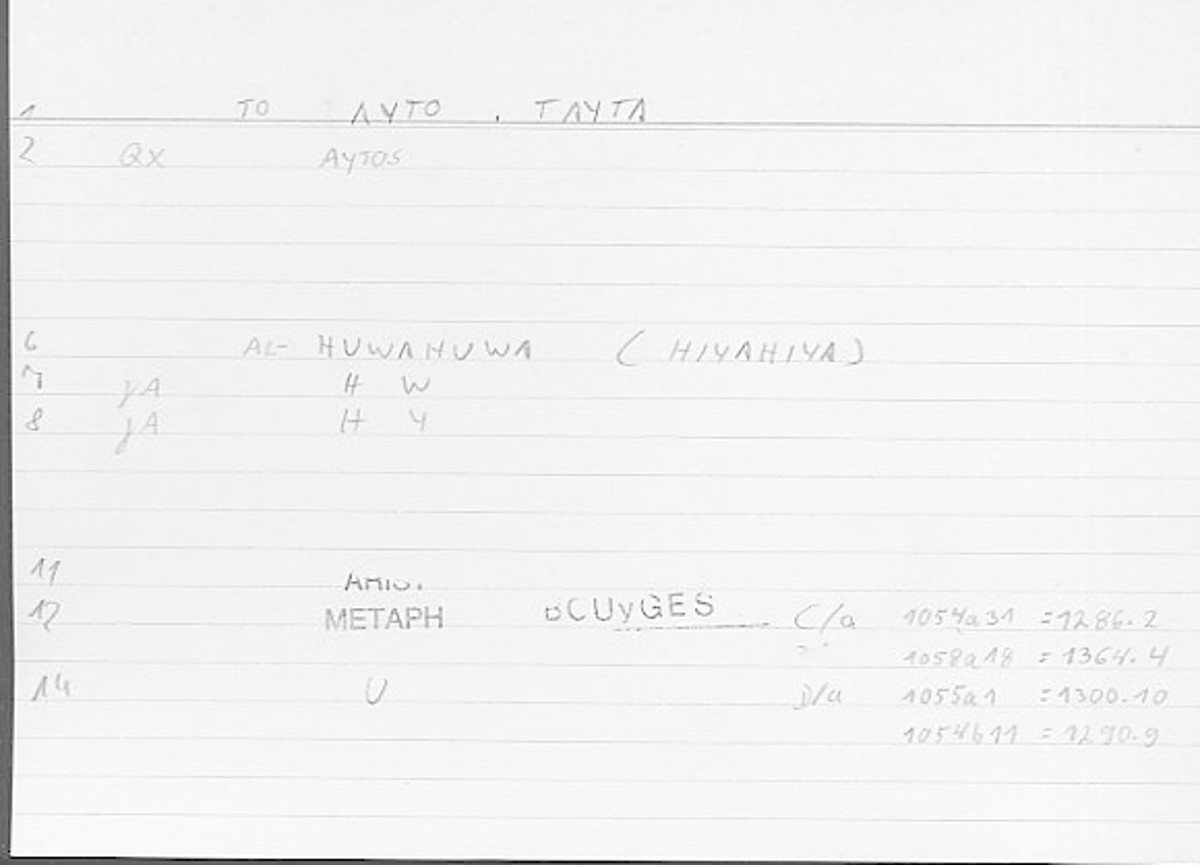 1 TO AYTO , TAYTA
2 QX AYTOS
6 AL- HUWAHUWA ( HIYAHIYA )
7 jA H W
8 jA H Y
11
12 METAPH BCUyGES C/a 1054a31 =1286.2
1058a18 =1364.4
14 U D/a 1055a1 =1300.10
1054b11 =1290.9